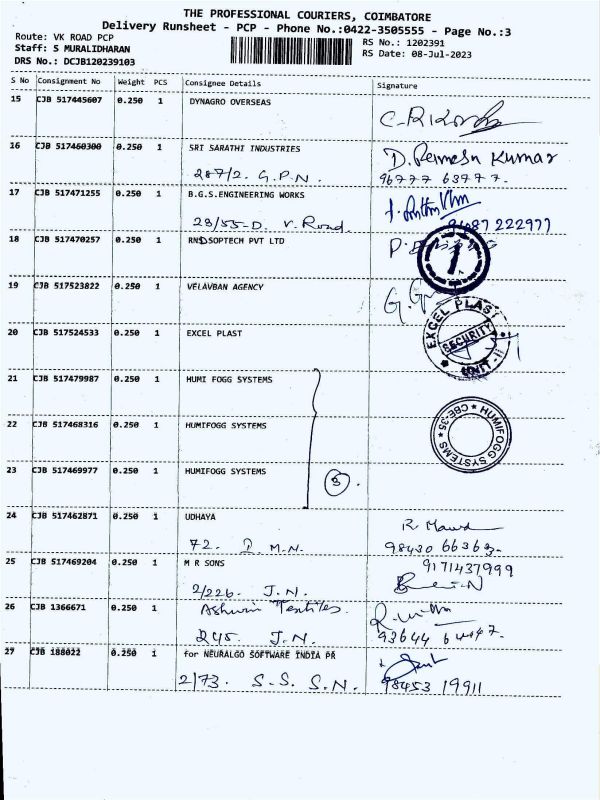 THE PROFESSIONAL COURIERS, COIMBATORE
Delivery Runsheet - PCP - Phone No.:0422-3505555 - Page No.:3
Route: VK ROAD PCP
Staff: S MURALIDHARAN
DRS No.: DCJB120239103
RS No.: 1202391
RS Date: 08-Jul-2023
S No Consignment No Weight PCS Consignee Details Signature
15 CJB 517445607 0.250 1 DYNAGRO OVERSEAS
16 CJB 517460300 0.250 1 SRI SARATHI INDUSTRIES D. Ramesh Kumar
287/2. G.P.N. 96777 63977.
17 CJB 517471255 0.250 1 B.G.S.ENGINEERING WORKS
28/55-D. V. Road. 87 222977
18 CJB 517470257 0.250 1 RNDSOPTECH PVT LTD
1
19 CJB 517523822 0.250 1 VELAVBAN AGENCY
20 CJB 517524533 0.250 1 EXCEL PLAST
EXCEL PLAST
SECURITY
UNIT - II
21 CJB 517479987 0.250 1 HUMI FOGG SYSTEMS
22 CJB 517468316 0.250 1 HUMIFOGG SYSTEMS
HUMIFOGG SYSTEMS
CBE-35
23 CJB 517469977 0.250 1 HUMIFOGG SYSTEMS
24 CJB 517462871 0.250 1 UDHAYA
72. D. M.N. 98430 66363.
25 CJB 517469204 0.250 1 M R SONS 9171437999
2/226. J.N.
26 CJB 1366671 0.250 1 Ashwin Textiles.
245. J.N. 93644 64447.
27 CJB 188022 0.250 1 for NEURALGO SOFTWARE INDIA PR
2/73. S.S. S.N. 98453 19911